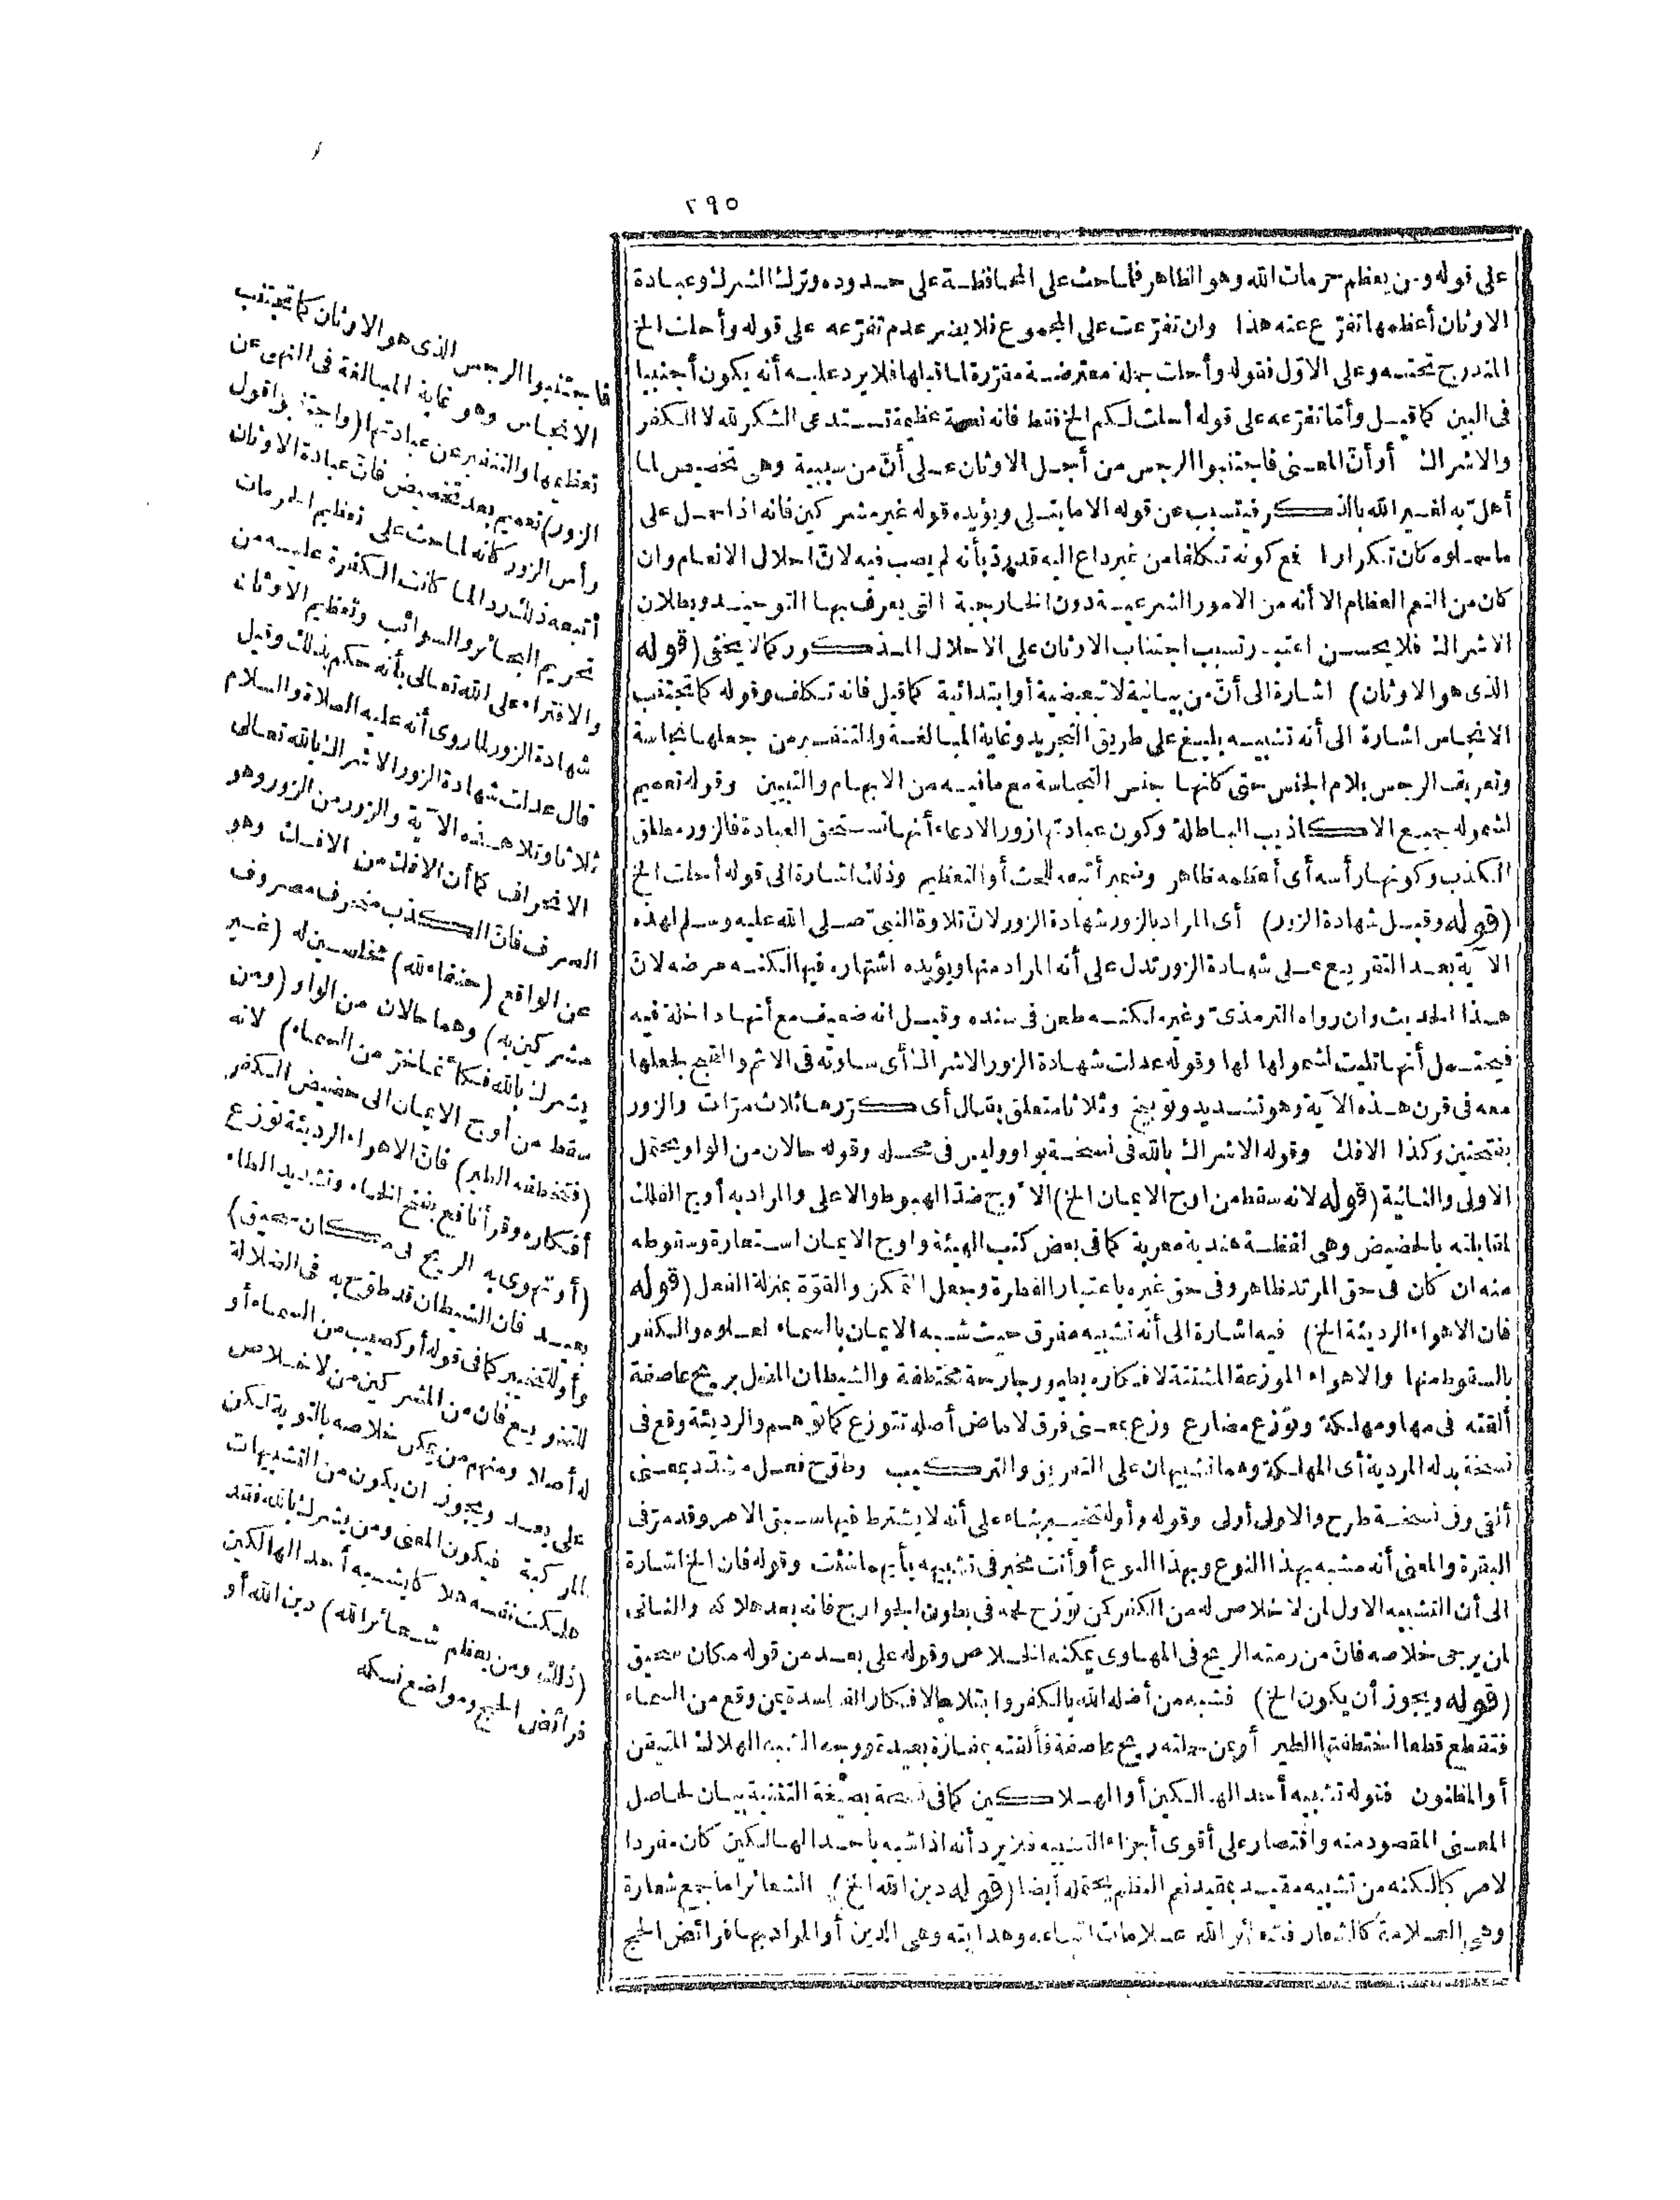 ٢٩٥
على قوله ومن يعظم حرمات الله وهو الظاهر فلما حث على المحافظة على حدوده وترك الشرك وعبادة
الاوثان أعظمها تفرّع عنه هذا وان تفرّعت على المجموع فلا يضر عدم تفرّعه على قوله وأحلت الخ
المندرج تحته وعلى الاوّل فقوله وأحلت جملة معترضة مقرّرة لما قبلها فلا يرد عليه أنه يكون أجنبيا
فى البين كما قيل وأمّا تفرّعه على قوله أحلت لكم الخ فقط فانه نعمة عظيمة تستدعى الشكر لله لا الكفر
والاشراك أو أنّ المعنى فاجتنبوا الرجس من أجل الاوثان على أنّ من سببية وهى تخصيص لما
أهلّ به لغير الله بالذكر فيتسبب عن قوله الا ما يتلى ويؤيده قوله غير مشركين فانه اذا حمل على
ما حملوه كان تكرارا فمع كونه تكلفا من غير داع اليه قد ردّ بأنه لم يصب فيه لانّ احلال الانعام وان
كان من النعم العظام الا أنه من الامور الشرعية دون الخارجية التى يعرف بها التوحيد وبطلان
الاشراك فلا يحسن اعتبار تسبب اجتناب الاوثان على الاحلال المذكور كما لا يخفى (قوله
الذى هو الاوثان) اشارة الى أنّ من بيانية لا تبعيضية أو ابتدائية كما قيل فانه تكلف وقوله كما تجتنب
الانجاس اشارة الى أنه تشبيه بليغ على طريق التجريد وغاية المبالغة والتنفير من جعلها نجاسة
وتعريف الرجس بلام الجنس حتى كانها جنس النجاسة مع ما فيه من الابهام والتبيين وقوله تعميم
لشموله جميع الاكاذيب الباطلة وكون عبادتها زور الادعاء أنها تستحق العبادة فالزور مطلق
الكذب وكونها رأسه أى أعظمه ظاهر وضمير أتبعه للحث أو التعظيم وذلك اشارة الى قوله أحلت الخ
(قوله وقيل شهادة الزور) أى المراد بالزور شهادة الزور لانّ تلاوة النبىّ صلى الله عليه وسلم لهذه
الآية بعد التقريع على شهادة الزور تدل على أنه المراد منها ويؤيده اشتهاره فيها لكنه مرضه لانّ
هذا الحديث وان رواه الترمذىّ وغيره لكنه طعن فى سنده وقيل انه ضعيف مع أنها داخلة فيه
فيحتمل أنها تليت لشمولها لها وقوله عدلت شهادة الزور الاشراك أى ساوته فى الاثم والقبح لجعلها
معه فى قرن هذه الآية وهو تشديد وتوبيخ وثلاثا متعلق بقال أى كرّرها ثلاث مرّات والزور
بفتحتين وكذا الافك وقوله الاشراك بالله فى نسخة بواو وليس فى محله وقوله حالان من الواو يحتمل
الاولى والثانية (قوله لانه سقط من اوج الايمان الخ) الاوج ضدّ الهبوط والاعلى والمراد به أوج الفلك
لمقابلته بالحضيض وهى لفظة هندية معربة كما فى بعض كتب الهيئة واوج الايمان استعارة وسقوطه
منه ان كان فى حق المرتد فظاهر وفى حق غيره باعتبار الفطرة وجعل التمكن والقوّة بمنزلة الفعل (قوله
فان الاهواء الرديئة الخ) فيه اشارة الى أنه تشبيه مفرق حيث شبه الايمان بالسماء لعلوه والكفر
بالسقوط منها والاهواء الموزعة المشتتة لافكاره بطيور جارحة مختطفة والشيطان المضل بريح عاصفة
ألقته فى مهاو مهلكة وتوزع مضارع وزع بمعنى فرق لا ماض أصله تتوزع كما توهم والرديئة وقع فى
نسخة بدله المردية أى المهلكة وهما تشبيهان على التفريق والتركيب وطوّح فعل مشدّد بمعنى
ألقى وفى نسخة طرح والاولى أولى وقوله وأو للتخيير بناء على أنه لا يشترط فيها سبق الامر وقد مرّ فى
البقرة والمعنى أنه مشبه بهذا النوع وبهذا النوع أو أنت مخير فى تشبيهه بأيهما شئت وقوله فان الخ اشارة
الى أن التشبيه الاول لمن لا خلاص له من الكفر كمن توزع لحمه فى بطون الجوارح فانه بعد هلاكه والثانى
لمن يرجى خلاصه فانّ من رمته الريح فى المهاوى يمكنه الخلاص وقوله على بعد من قوله مكان سحيق
(قوله ويجوز أن يكون الخ) فشبه من أضله الله بالكفر وابتلاه بالافكار الفاسدة بمن وقع من السماء
فتقطع قطعا اختطفتها الطير أو بمن حملته ريح عاصفة فألقته بمفازة بعيدة ووجه الشبه الهلاك المتيقن
أو المظنون فقوله تشبيه أحد الهالكين أو الهلاكين كما فى نسخة بصيغة التثنية بيان لحاصل
المعنى المقصود منه واقتصار على أقوى أجزاء التشبيه فلا يرد أنه اذا شبه بأحد الهالكين كان مفردا
لا مركبا لكنه من تشبيه مقيد بمقيد نعم النظم يحتمله أيضا (قوله دين الله الخ) الشعائر اما جمع شعارة
وهى العلامة كالشعار فشعائر الله علامات اتباعه وهدايته وهى الدين أو المراد بها فرائض الحج
فاجتنبوا الرجس الذى هو الاوثان كما تجتنب
الانجاس وهو غاية المبالغة فى النهى عن
تعظيمها والتنفير عن عبادتها (واجتنبوا قول
الزور) تعميم بعد تخصيص فانّ عبادة الاوثان
رأس الزور كانه لما حث على تعظيم الحرمات
أتبعه ذلك ردا لما كانت الكفرة عليه من
تحريم البحائر والسوائب وتعظيم الاوثان
والافتراء على الله تعالى بأنه حكم بذلك وقيل
شهادة الزور لما روى أنه عليه الصلاة والسلام
قال عدلت شهادة الزور الاشراك بالله تعالى
ثلاثا وتلا هذه الآية والزور من الزور وهو
الانحراف كما أن الافك من الافك وهو
الصرف فانّ الكذب منحرف مصروف
عن الواقع (حنفاء لله) مخلصين له (غير
مشركين به) وهما حالان من الواو (ومن
يشرك بالله فكأنما خرّ من السماء) لانه
سقط من أوج الايمان الى حضيض الكفر
(فتخطفه الطير) فانّ الاهواء الرديئة توزع
أفكاره وقرأ نافع بفتح الخاء وتشديد الطاء
(أو تهوى به الريح فى مكان سحيق)
بعيد فان الشيطان قد طوّح به فى الضلالة
وأو للتخيير كما فى قوله أو كصيب من السماء أو
للتنويع فان من المشركين من لا خلاص
له أصلا ومنهم من يمكن خلاصه بالتوبة لكن
على بعد ويجوز ان يكون من التشبيهات
المركبة فيكون المعنى ومن يشرك بالله فقد
هلكت نفسه هلاكا يشبه أحد الهالكين
(ذلك ومن يعظم شعائر الله) دين الله أو
فرائض الحج ومواضع نسكه